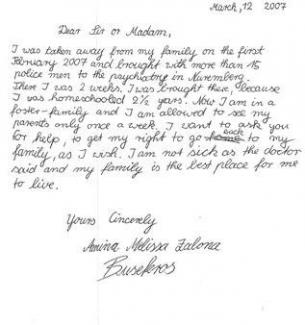 March, 12 2007
Dear Sir or Madam,
I was taken away from my family on the first
February 2007 and brought with more than 15
police men to the psychiatriy in Nuremberg.
There I was 2 weeks. I was brought there, because
I was homeschooled 2½ years. Now I am in a
foster-family and I am allowed to see my
parents only once a week. I want to ask you
for help, to get my right to go back to my
family, as I wish. I am not sick as the doctor
said and my family is the best place for me
to live.
Yours Cincerely
Melissa
Busekros